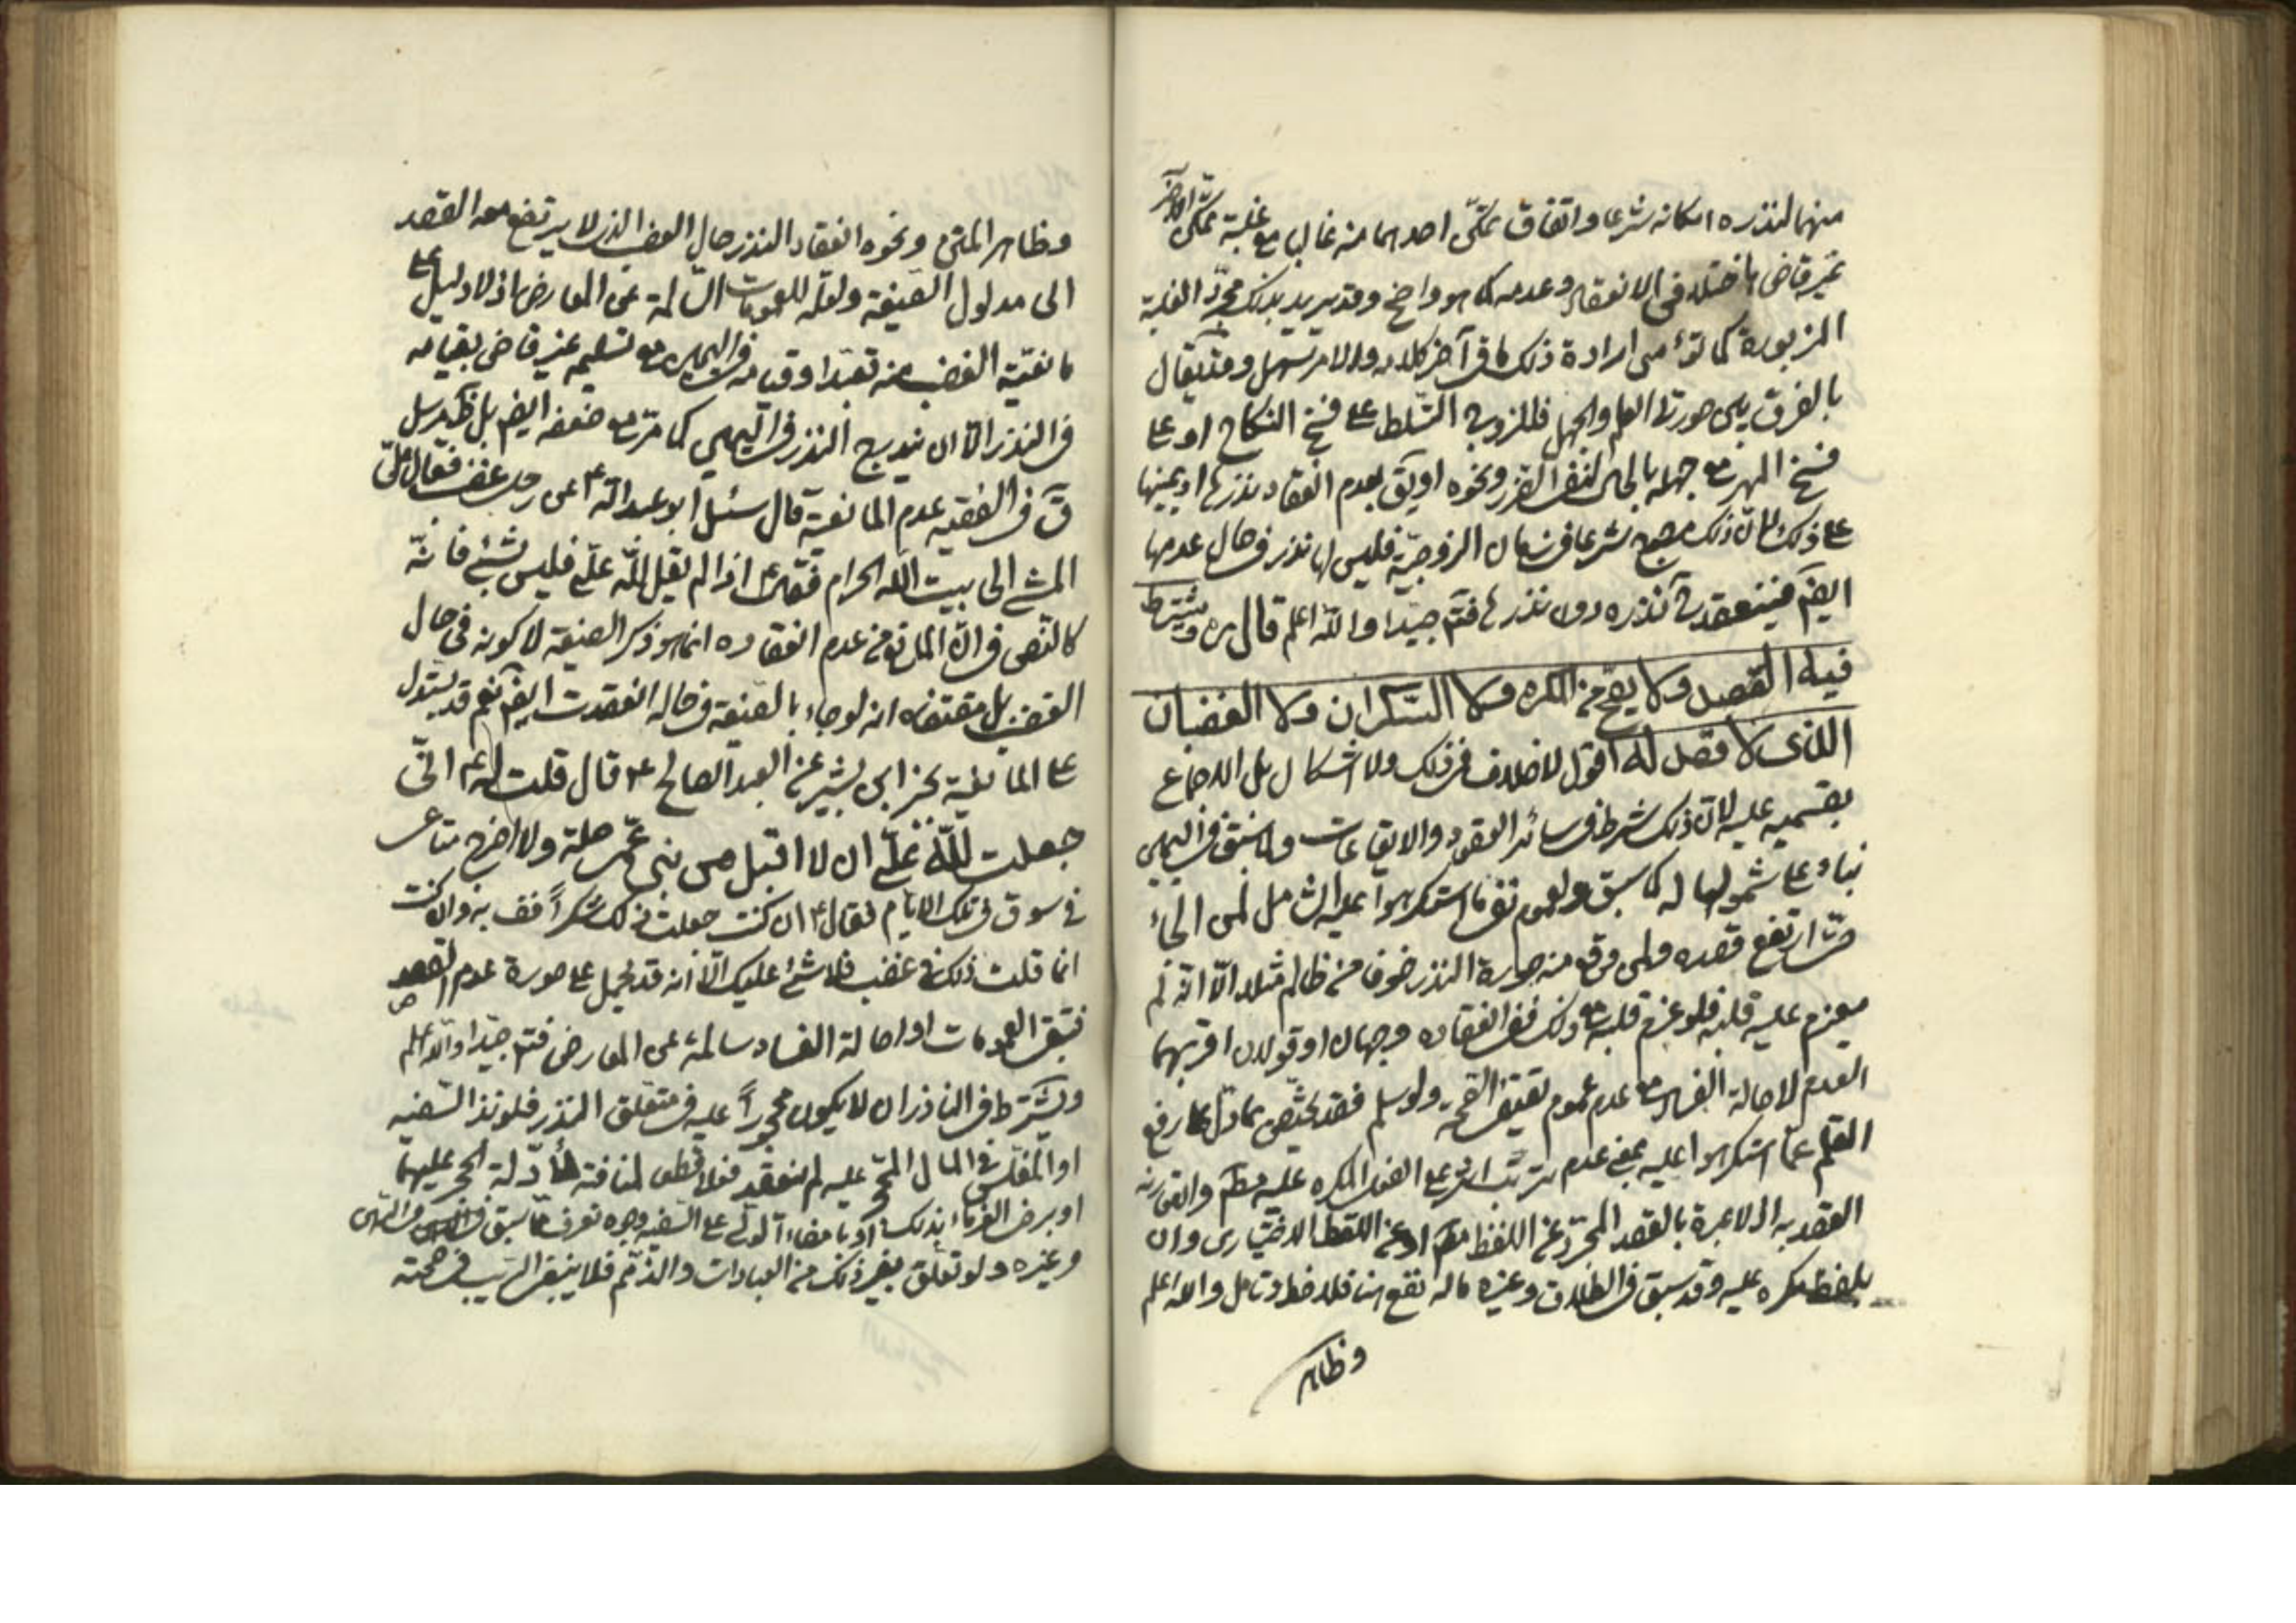 منهما لنذره امكانه شرعا واتفاق تمكّن احدهما منه غالبا مع غلبة تمكّن الآخر
غير قاض باختلاف في الانعقاد وعدمه كما هو واضح وقد يريد بذلك مجرّد الغلبة
المزبورة كما تؤمى ارادة ذلك ما في آخر كلامه والامر سهل وقد يقال
بالفرق بين صورتى العلم والجهل فللزوجة التسلط على فسخ النكاح او على
فسخ المهر مع جهله بالحال لنفى الضرر ونحوه او يق بعدم انعقاد نذرها او يمينها
على ذلك لانّ ذلك شرعا في زمان الزوجيّة فليس لها نذر في حال عدمها
ايضا فينعقد نذره دون نذرها فتم جيّدا والله اعلم قال ره ويشترط
فيه القصد ولا يقع من المكره ولا السكران ولا الغضبان
الذى لا قصد له اقول لا خلاف في ذلك ولا اشكال بل الاجماع
بقسميه عليه لانّ ذلك شرط في سائر العقود والايقاعات ولما سبق في اليمين
بناء على شمولها له كما سبق ولعموم نفى ما استكرهوا عليه الشامل لمن الجأ
حتّى ارتفع قصده ولمن وقع منه صورة النذر خوفا من ظالم مثلا الّا انّه لم
يعزم عليه قلبه فلو عزم قلبه مع ذلك ففى انعقاده وجهان او قولان اقربهما
العدم لاصالة الفساد مع عدم عموم يقتضى الصّحة ولو سلم فقد يختصّ بما دلّ على رفع
القلم عمّا استكرهوا عليه بمعنى عدم ترتّب اثر على الفعل المكره عليه مطم والقى رنه
القصد به اذ لا عبرة بالقصد المجرّد عن اللفظ مطم او عن اللفظ الاختيارى وان
بلفظ مكره عليه وقد سبق في الطلاق وغيره ماله نفع هنا فلاحظ وتامل والله اعلم
وظاهر
وظاهر المتن ونحوه انعقاد النذر حال الغضب الذى لا يرتفع معه القصد
الى مدلول الصّيغة ولعله للعمومات السّالمة عن المعارض اذ لا دليل على
مانعيّة الغضب منه تعبّدا وقيامه في اليمين مع تسليمه غير قاض بقيامه
في النذر الّا ان يندرج النذر في اليمين كما مرّ مع ضعفه ايضا بل ظ مرسل
ق في الفقيه عدم المانعيّة قال سئل ابو عبد الله ع عن رجل غضب فقال علىّ
المشى الى بيت الله الحرام فقال ع اذا لم يقل للّه علىّ فليس بشئ فانّه
كالنّص في انّ المانع من عدم انعقاده انما هو ذكر الصيغة لا كونه في حال
الغضب بل مقتضاه انه لو جاء بالصّيغة في حاله انعقدت ايضا نعم قد يستدل
على المانعيّة بخبر ابى بشير عن العبد الصالح ع قال قلت له ع انّى
جعلت للّه علىّ ان لا اقبل من بنى عمّى صلة ولا اخرج متاعى
في سوق في تلك الايّام فقال ع ان كنت جعلت ذلك شكرا فف به وان كنت
انما قلت ذلك في غضب فلا شئ عليك الّا انه قد يحمل على صورة عدم القصد
فتبقى العمومات او اصالة الفساد سالمة عن المعارض فتم جيّدا والله اعلم
ويشترط في الناذر ان لا يكون محجورا عليه في متعلق النذر فلو نذر السّفيه
او المفلّس في المال المحجّر عليه لم ينعقد فعلا قطعا لمنافته لادّلة الحجر عليهما
او برضى الغرماء بذلك او بامضاء الولى على السّفيه وجوه تعرف ممّا سبق في
وغيره ولو تعلّق بغير ذلك من العبادات والذّمّم فلا ينبغى الرّيب في صحّته